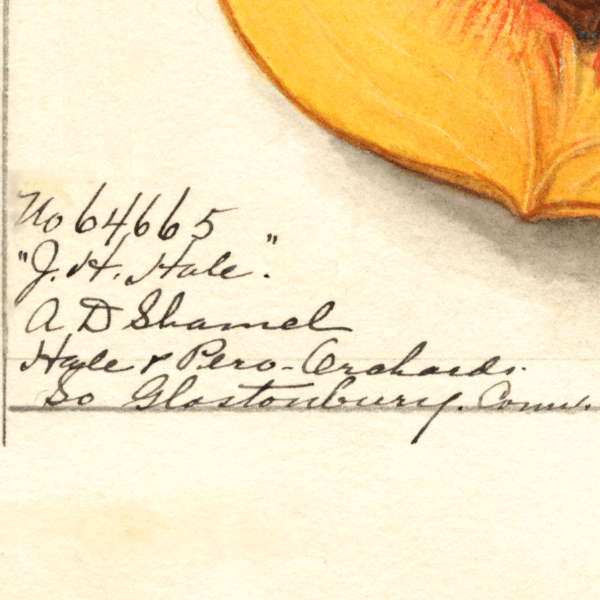 No 64665
"J. H. Hale".
A D Shamel
Hale & Pero - Orchards.
So Glastonbury. Conn.